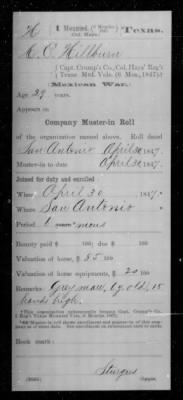 H | 1 Mounted (6 Months 1847.) | Texas.
Col. Hays'
H. E. Hillburn
Capt. Crump's Co., Col. Hays' Reg't
Texas Mtd. Vols. (6 Mos., 1847).*
Mexican War.
Age 29 years.
Appears on
Company Muster-in Roll
of the organization named above. Roll dated
San Antonio April 30, 1847.
Muster-in to date April 30, 1847.
Joined for duty and enrolled
When April 30 1847.
Where San Antonio
Period 6 years mons
Bounty paid $ 100; due $ 100
Valuation of horse, $ 85 100
Valuation of horse equipments, $ 20 100
Remarks: Grey mare, 6 y old, 15
hands high.
Book mark:
Sturges
Copyist.